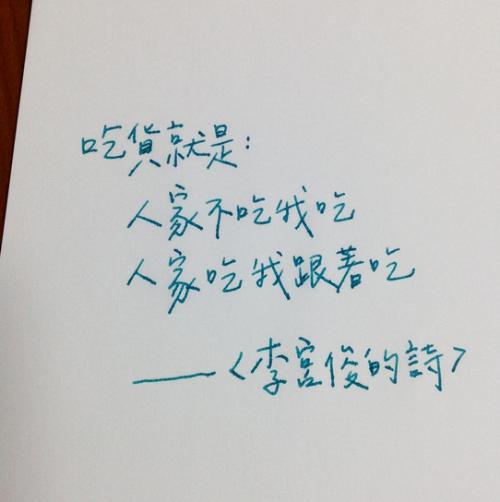 吃貨就是：
人家不吃我吃
人家吃我跟著吃
——〈李宮俊的詩〉